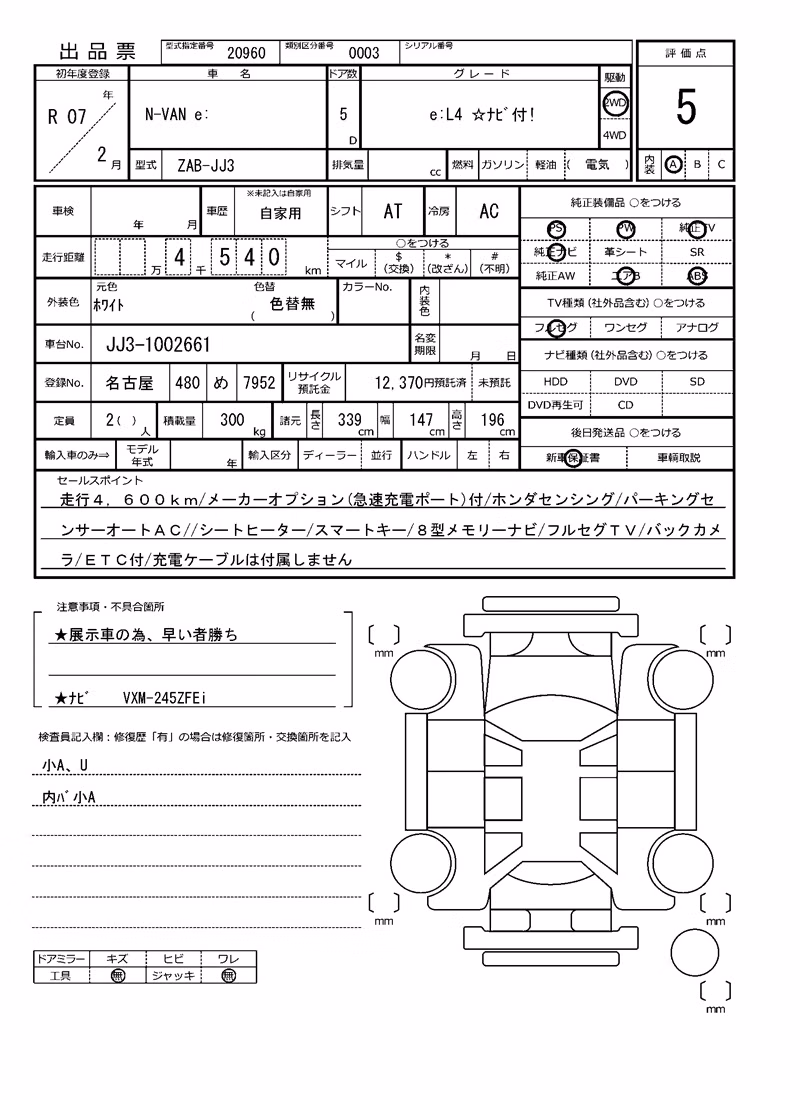 出品票 型式指定番号 20960 類別区分番号 0003 シリアル番号
評価点
5
内装 A B C
初年度登録 車名 ドア数 グレード 駆動
R 07 年 2 月 N-VAN e: 5 D e:L4 ☆ﾅﾋﾞ付! 2WD 4WD
型式 ZAB-JJ3 排気量 cc 燃料 ガソリン 軽油 ( 電気 )
車検 年 月 車歴 ※未記入は自家用 自家用 シフト AT 冷房 AC
走行距離 万 4 千 5 4 0 km ○をつける
マイル $(交換) *(改ざん) #(不明)
外装色 元色 ﾎﾜｲﾄ 色替 ( 色替無 ) カラーNo. 内装色
車台No. JJ3-1002661 名変期限 月 日
登録No. 名古屋 480 め 7952 リサイクル預託金 12,370円預託済 未預託
定員 2( ) 人 積載量 300 kg 諸元 長さ 339 cm 幅 147 cm 高さ 196 cm
輸入車のみ⇒ モデル年式 年 輸入区分 ディーラー 並行 ハンドル 左 右
純正装備品 ○をつける
PS PW 純正TV
純正ナビ 革シート SR
純正AW エアB ABS
TV種類(社外品含む)○をつける
フルセグ ワンセグ アナログ
ナビ種類(社外品含む)○をつける
HDD DVD SD
DVD再生可 CD
後日発送品 ○をつける
新車保証書 車輌取説
セールスポイント
走行４，６００ｋｍ/メーカーオプション(急速充電ポート)付/ホンダセンシング/パーキングセ
ンサーオートＡＣ//シートヒーター/スマートキー/８型メモリーナビ/フルセグＴＶ/バックカメ
ラ/ＥＴＣ付/充電ケーブルは付属しません
注意事項・不具合箇所
★展示車の為、早い者勝ち
★ﾅﾋﾞ VXM-245ZFEi
検査員記入欄：修復歴「有」の場合は修復箇所・交換箇所を記入
小A、U
内ﾊﾞ小A
ドアミラー キズ ヒビ ワレ
工具 無 ジャッキ 無
mm mm
mm mm
mm